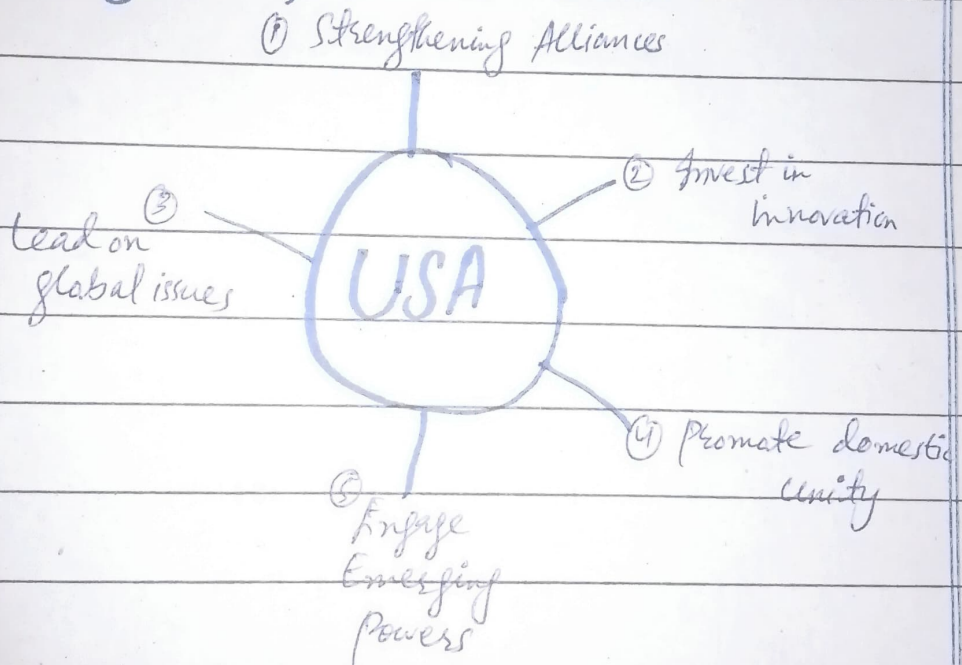 ① Strengthening Alliances
② Invest in
innovation
③
Lead on
global issues
USA
④ Promote domestic
unity
⑤
Engage
Emerging
Powers